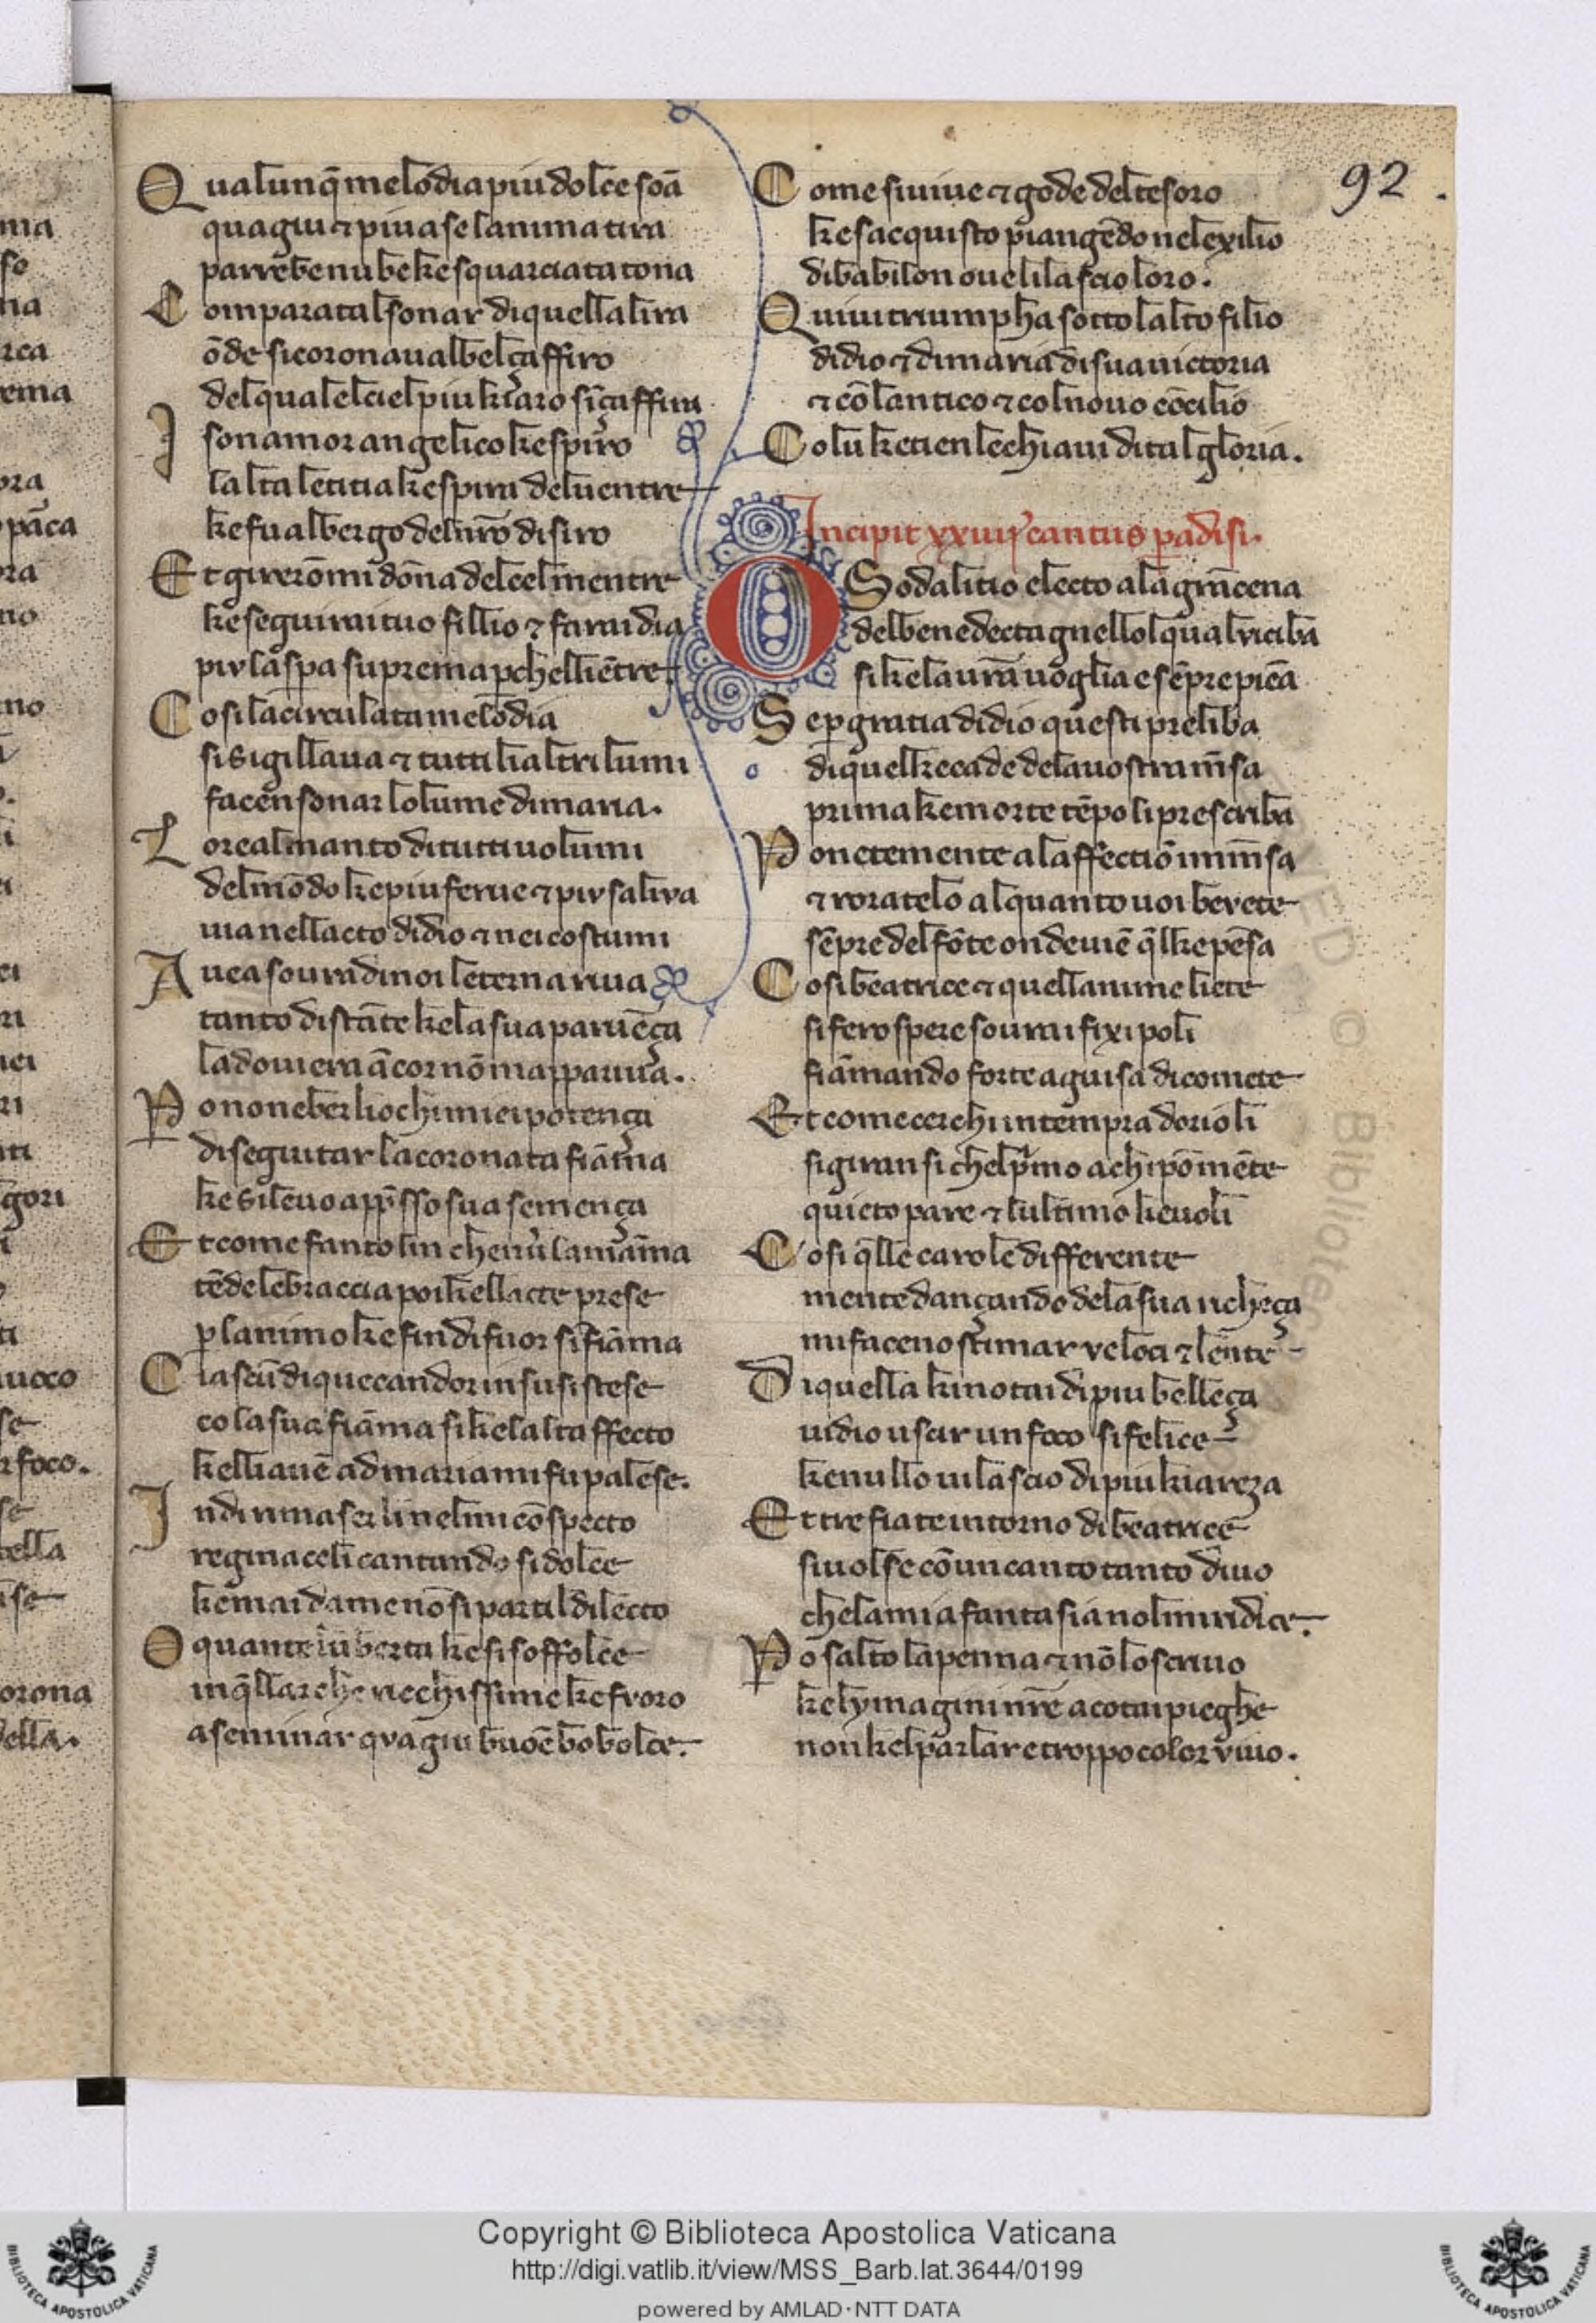 Qualunq̄ melodia piu dolce soā
qua giu ⁊ piu a se lanima tira
parrebe nube ke squarciata tona
Comparata l sonar di quella lira
ōde si coronaua l bel çaffiro
del quale l ciel piu kiaro sinçaffira
I son amor angelico ke spiro
lalta letitia ke spira del uentre
ke fu albergo del nr̄o disiro
Et gireromi dōna del ciel mentre
ke seguirai tuo fillio ⁊ farai dia
piu la spa suprema ꝑche lli ētre
Cosi la circulata melodia
si sigillaua ⁊ tutti li altri lumi
facen sonar lo lume di maria.
Lo real manto di tutti uolumi
del mōdo ke piu ferue ⁊ piu saliva
ma nellacto didio ⁊ nei costumi
Auea soura di noi leterna riua
tanto distāte ke la sua paruēça
la douiera ācor nō mappariua.
Po non eber li ochi miei potença
di seguitar la coronata fiāma
ke si leuo app̄sso sua semença
Et come fantolin che nuer la māma
tēde le braccia poi kel lacte prese
ꝑ lanimo ke fin di fuor sifiāma
Ciascū di que candor in su si stese
co la sua fiāma si kelalta ffecto
kelli auē ad maria mi fu palese.
Indi rimaser li nel mi cōspecto
regina celi cantando si dolce
ke mai da me nō si parti l dilecto
O quante ubertà ke si soffolce
in q̄llarche richissime ke foro
a seminar qua giu buoe bobolce.
Come si uiue ⁊ gode del tesoro
ke sacquisto piangēdo nel exilio
di babilon oue li lascio loro.
Quiui triumpha sotto lalto filio
didio ⁊ di maria di sua uictoria
⁊ cō lantico ⁊ col nouo cōcilio
Colu ke tien le chiaui di tal gloria.
92.
Incipit xxiiij cantus ꝑadisi.
O Sodalitio electo a la gran cena
del benedecto agnello l qual ui ciba
si ke la ura uoglia e sēpre piēa
Se ꝑ gratia didio questi preliba
di quel ke cade de la uostra mn̄sa
prima ke morte tēpo li prescriba
Ponete mente a laffectiō immn̄sa
⁊ roratelo alquanto uoi beuete
sēpre del fōte onde uiē q̄l ke pēsa
Cosi beatrice ⁊ quellanime liete
si fero spere soura i fixi poli
fiāmando forte a guisa di comete
Et come cerchi in tempra doriuoli
si giran si chel pimo a chi pō mēte
quieto pare ⁊ lultimo ke uoli
Cosi q̄lle carole differente
mente dançando de la sua richeça
mi faceno stimar veloci ⁊ lente
Di quella ki notai di piu belleça
uidio uscir un foco si felice
ke nullo ui lascio di piu kiareza
Et tre fiate intorno di beatrice
si uolse cō un canto tanto diuo
che la mia fantasia nol mi ridice.
Po salto la penna ⁊ nō lo scriuo
ke lymagini nr̄e a cotai pieghe
non kel parlar e troppo color viuo.
Copyright © Biblioteca Apostolica Vaticana
http://digi.vatlib.it/view/MSS_Barb.lat.3644/0199
powered by AMLAD·NTT DATA